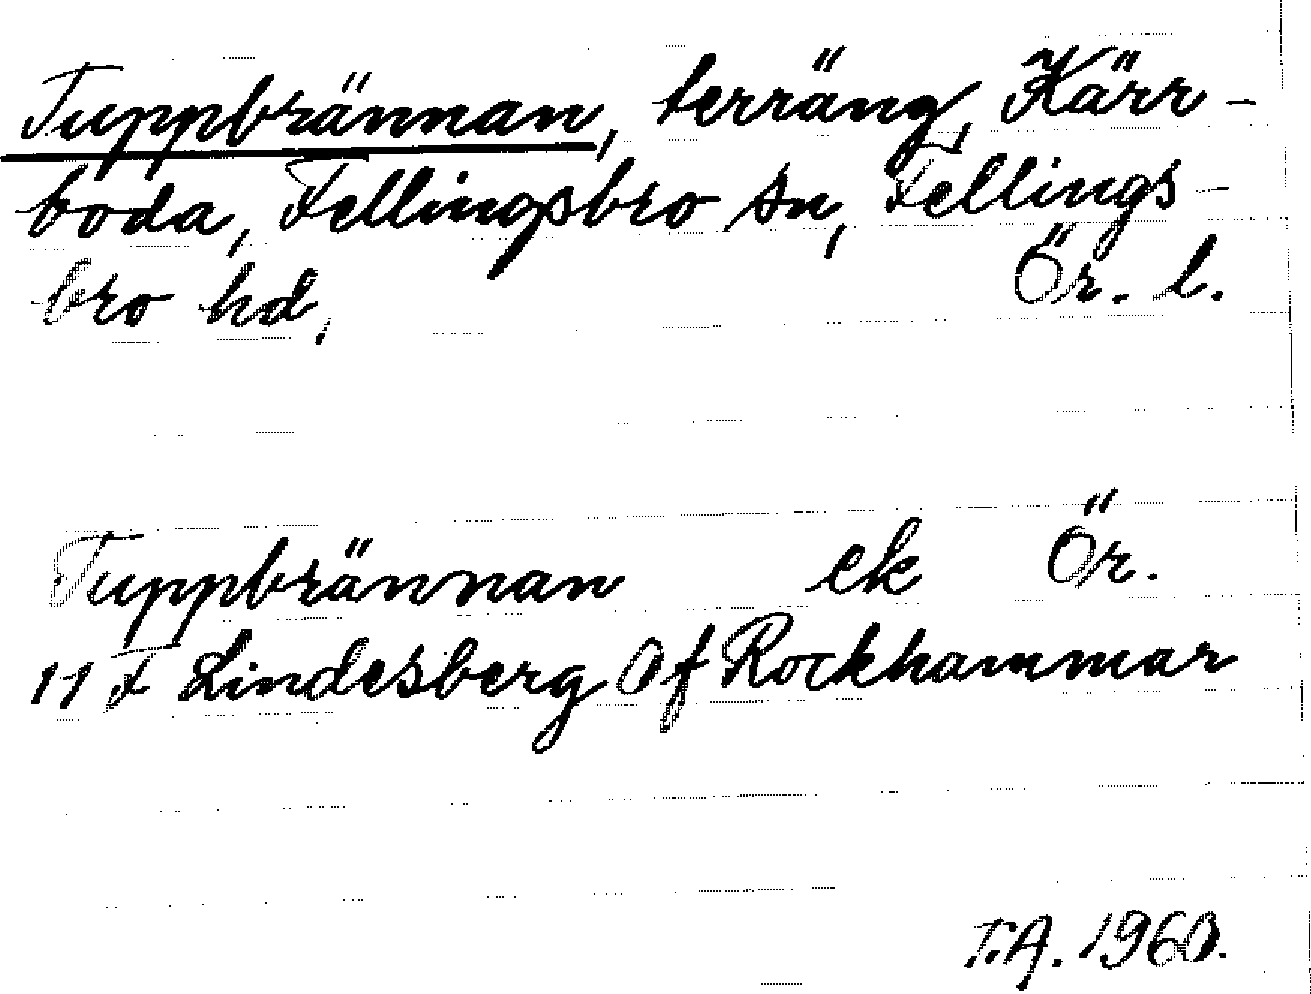 Tuppbrännan, terräng, Kärr-
boda, Fellingsbro sn, Fellings-
bro hd. Ör. l.
Tuppbrännan ek Ör.
11 F Lindesberg Of Rockhammar
T.A. 1960.